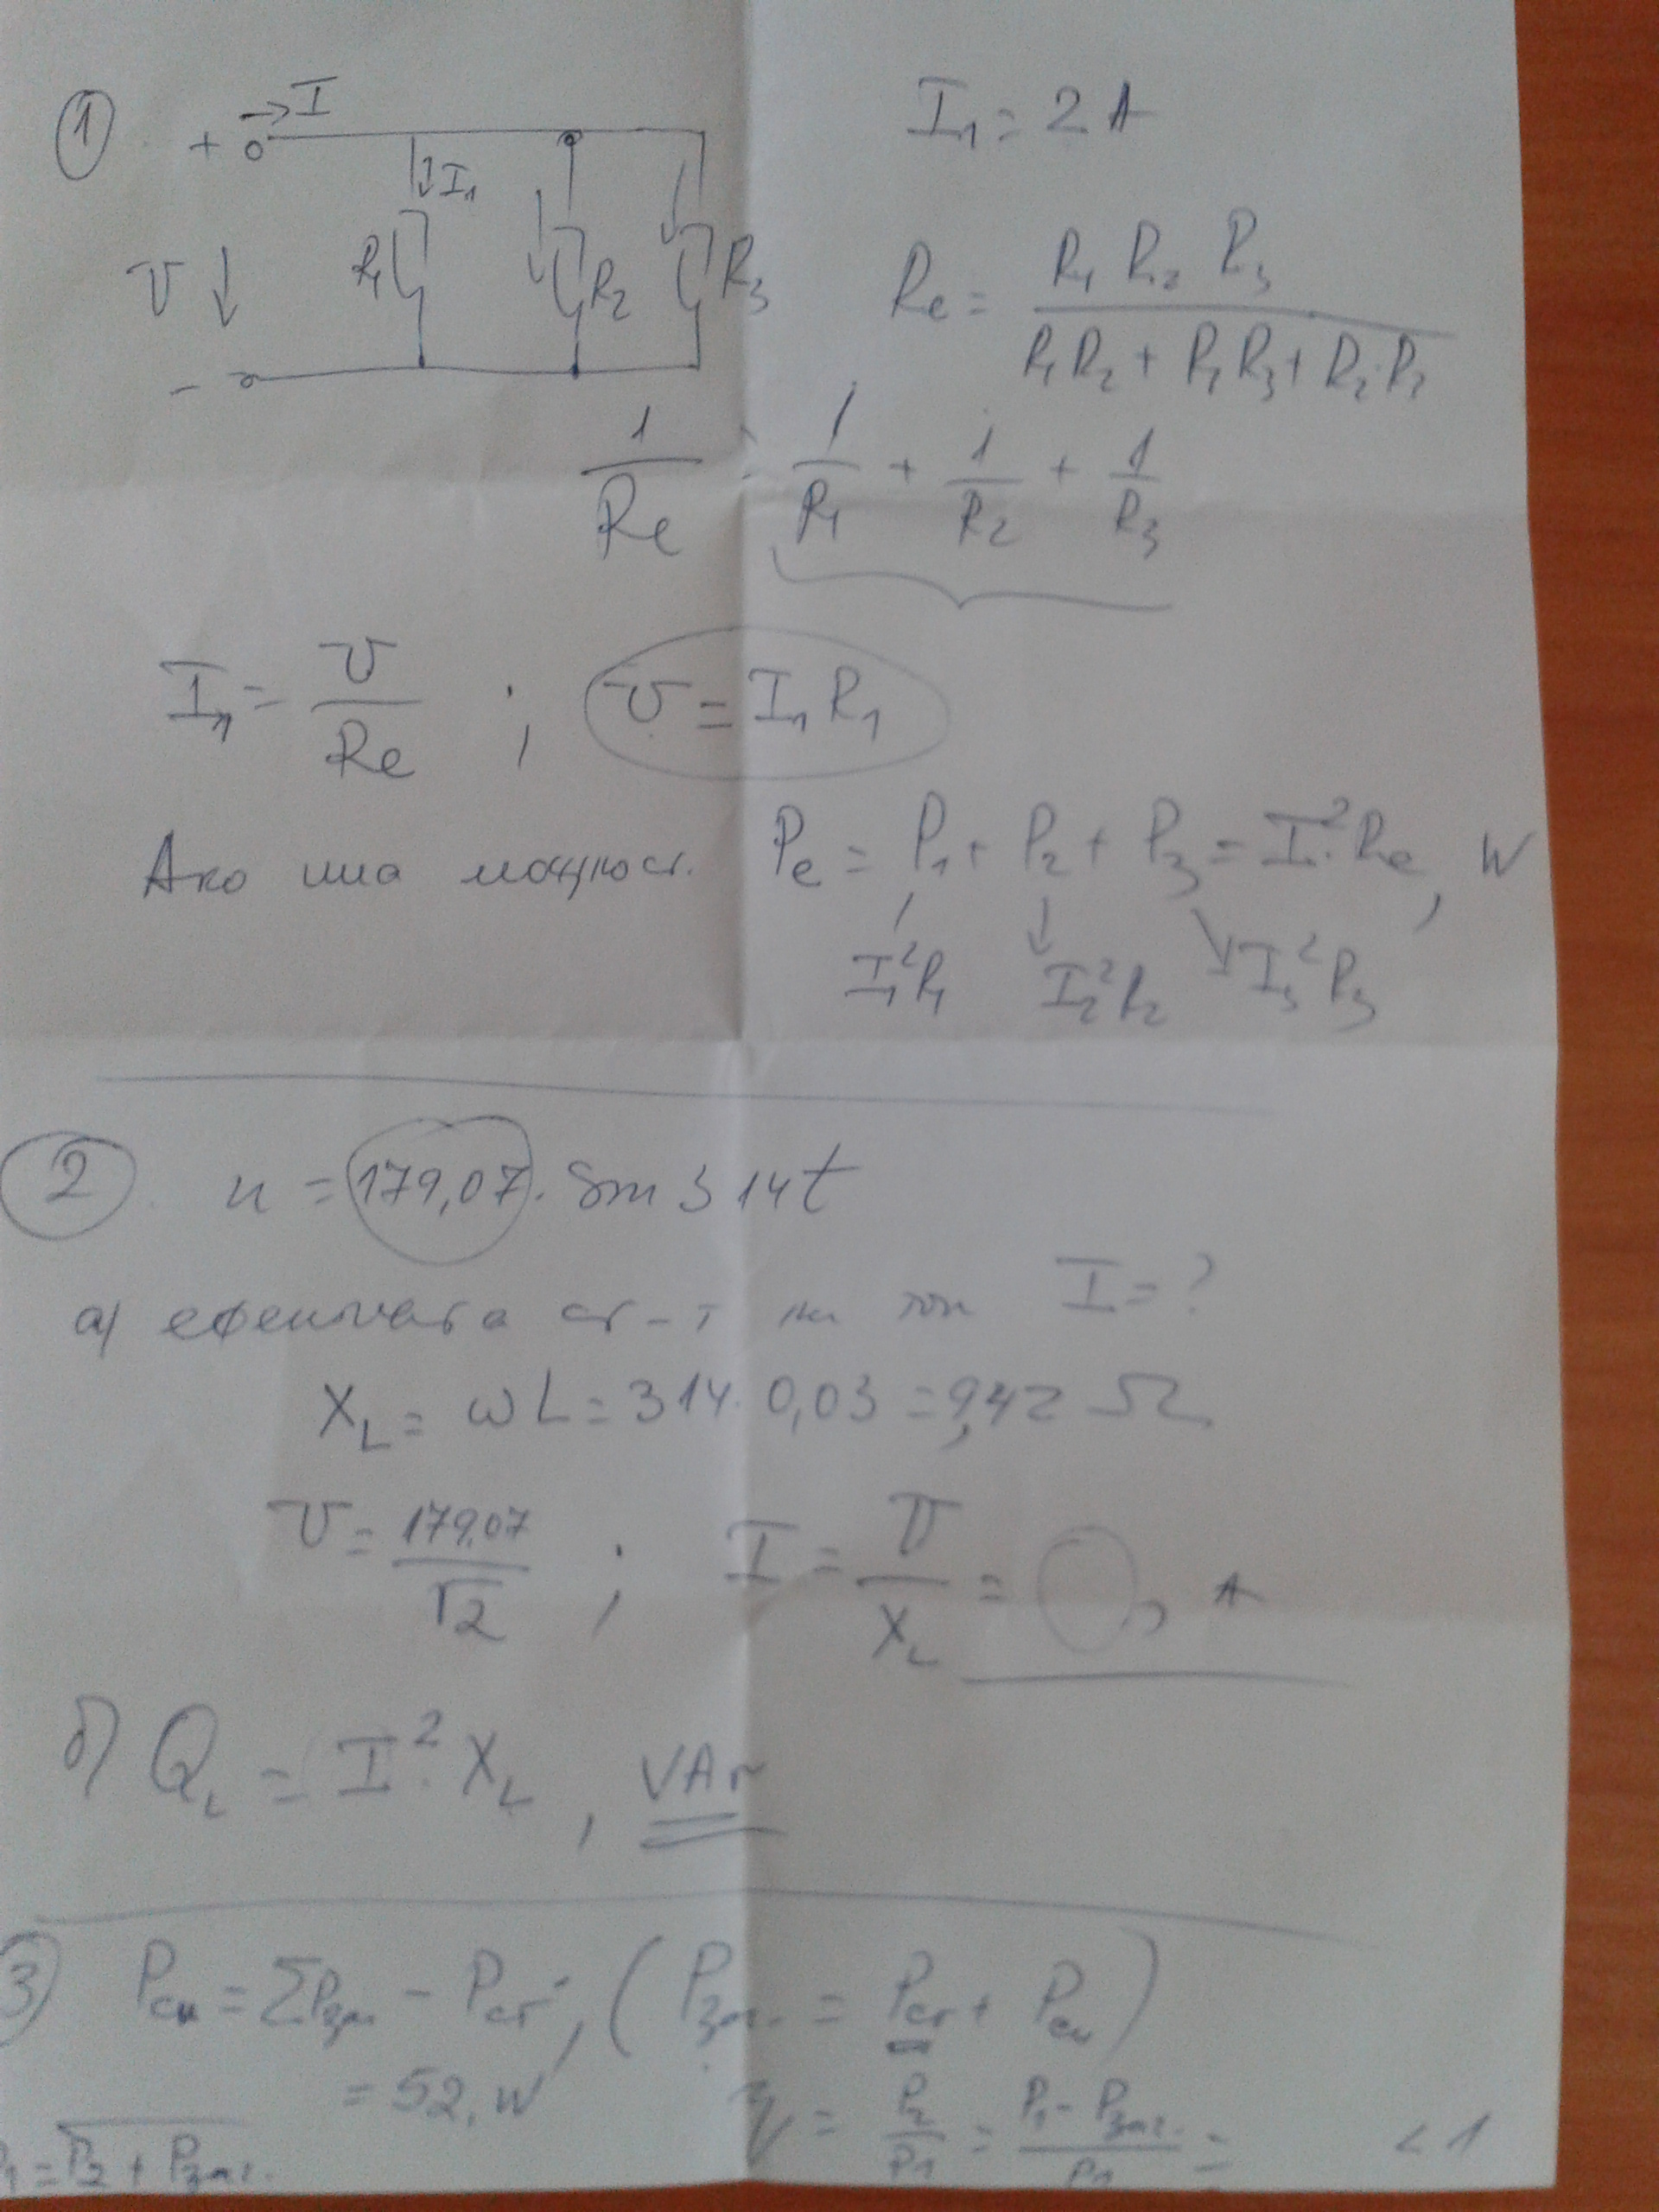 ① + → I
I₁ = 2 A
↓ I₁
U ↓ R₁ R₂ R₃
Re = R₁ R₂ R₃ / R₁ R₂ + R₁ R₃ + R₂ · R₃
-
1/Re = 1/R₁ + 1/R₂ + 1/R₃
I₁ = U/Re ; U = I₁ R₁
Ако има мощност. Pe = P₁ + P₂ + P₃ = I² · Re, W
I₁² R₁ I₂² R₂ I₃² R₃
② u = 179,07 · Sin 314t
а) ефективата ст-т на ток I = ?
X_L = ωL = 314 · 0,03 = 9,42 Ω
U = 179,07/√2 ; I = U/X_L = , A
б) Q_L = I² · X_L , VAr
3) Pсм = ΣPзаг - Pст , ( Pзаг. = Pст + Pсм )
= 52, W
η = P₂/P₁ = P₁ - Pзаг./P₁ = < 1
P₁ = P₂ + Pзаг.